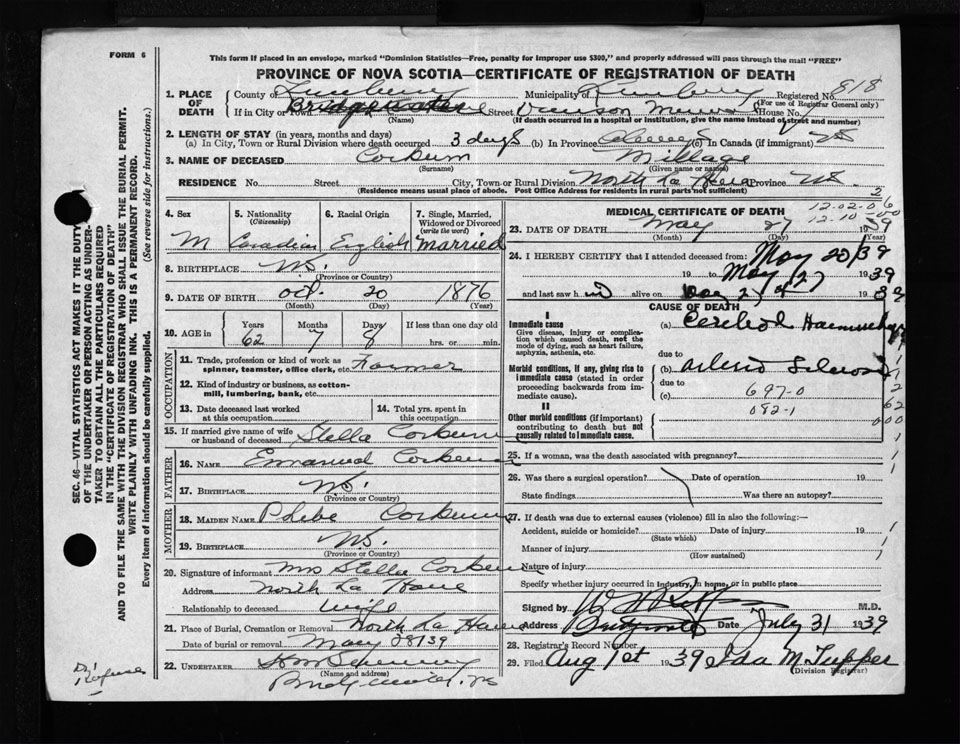 FORM 6
This form if placed in an envelope, marked "Dominion Statistics—Free, penalty for improper use $300," and properly addressed will pass through the mail "FREE"
PROVINCE OF NOVA SCOTIA—CERTIFICATE OF REGISTRATION OF DEATH
1. PLACE OF DEATH County of Lunenburg Municipality of Lunenburg Registered No. 818
(For use of Registrar General only)
If in City or Town Bridgewater Street House No.
(Name) (If death occurred in a hospital or institution, give the name instead of street and number)
2. LENGTH OF STAY (in years, months and days)
(a) In City, Town or Rural Division where death occurred 3 days (b) In Province Always (c) In Canada (if immigrant)
3. NAME OF DECEASED Corkum Millage
(Surname) (Given name or names)
RESIDENCE No. Street City, Town or Rural Division North La Have Province N.S.
(Residence means usual place of abode. Post Office Address for residents in rural parts not sufficient)
4. Sex M
5. Nationality (Citizenship) Canadian
6. Racial Origin English
7. Single, Married, Widowed or Divorced (write the word) married
8. BIRTHPLACE N.S.
(Province or Country)
9. DATE OF BIRTH Oct. 20 1876
(Month) (Day) (Year)
10. AGE in Years 62 Months 7 Days 8 If less than one day old hrs. or min.
OCCUPATION
11. Trade, profession or kind of work as spinner, teamster, office clerk, etc. Farmer
12. Kind of industry or business, as cotton-mill, lumbering, bank, etc.
13. Date deceased last worked at this occupation
14. Total yrs. spent in this occupation
15. If married give name of wife or husband of deceased Stella Corkum
FATHER
16. NAME Emanuel Corkum
17. BIRTHPLACE N.S.
(Province or Country)
MOTHER
18. MAIDEN NAME Phebe Corkum
19. BIRTHPLACE N.S.
(Province or Country)
20. Signature of informant Mrs Stella Corkum
Address North La Have
Relationship to deceased wife
21. Place of Burial, Cremation or Removal North La Have
Date of burial or removal May 28/39
22. UNDERTAKER
(Name and address)
Bridgewater, N.S.
MEDICAL CERTIFICATE OF DEATH
12-02-0 6
12-10
2
23. DATE OF DEATH May 27 1939
(Month) (Day) (Year)
24. I HEREBY CERTIFY that I attended deceased from: May 20/39
19 to May /27 1939
and last saw h im alive on 27 1939
CAUSE OF DEATH
I
Immediate cause
Give disease, injury or complication which caused death, not the mode of dying, such as heart failure, asphyxia, asthenia, etc.
(a) Cerebral Haemorrhage
due to
Morbid conditions, if any, giving rise to immediate cause (stated in order proceeding backwards from immediate cause).
(b) Arterio Sclerosis
due to
(c) 697-0
092-1
II
Other morbid conditions (if important) contributing to death but not causally related to immediate cause.
25. If a woman, was the death associated with pregnancy?
26. Was there a surgical operation? Date of operation 19
State findings Was there an autopsy?
27. If death was due to external causes (violence) fill in also the following:—
Accident, suicide or homicide? Date of injury 19
(State which)
Manner of injury
(How sustained)
Nature of injury
Specify whether injury occurred in industry, in home, or in public place
Signed by M.D.
Address Bridgewater Date July 31 1939
28. Registrar's Record Number
29. Filed Aug 1st 1939 Ida M Tupper
(Division Registrar)
SEC. 46—VITAL STATISTICS ACT MAKES IT THE DUTY OF THE UNDERTAKER OR PERSON ACTING AS UNDERTAKER TO OBTAIN ALL THE PARTICULARS REQUIRED IN THE "CERTIFICATE OF REGISTRATION OF DEATH"
AND TO FILE THE SAME WITH THE DIVISION REGISTRAR WHO SHALL ISSUE THE BURIAL PERMIT.
WRITE PLAINLY WITH UNFADING INK. THIS IS A PERMANENT RECORD.
Every item of information should be carefully supplied. (See reverse side for instructions.)